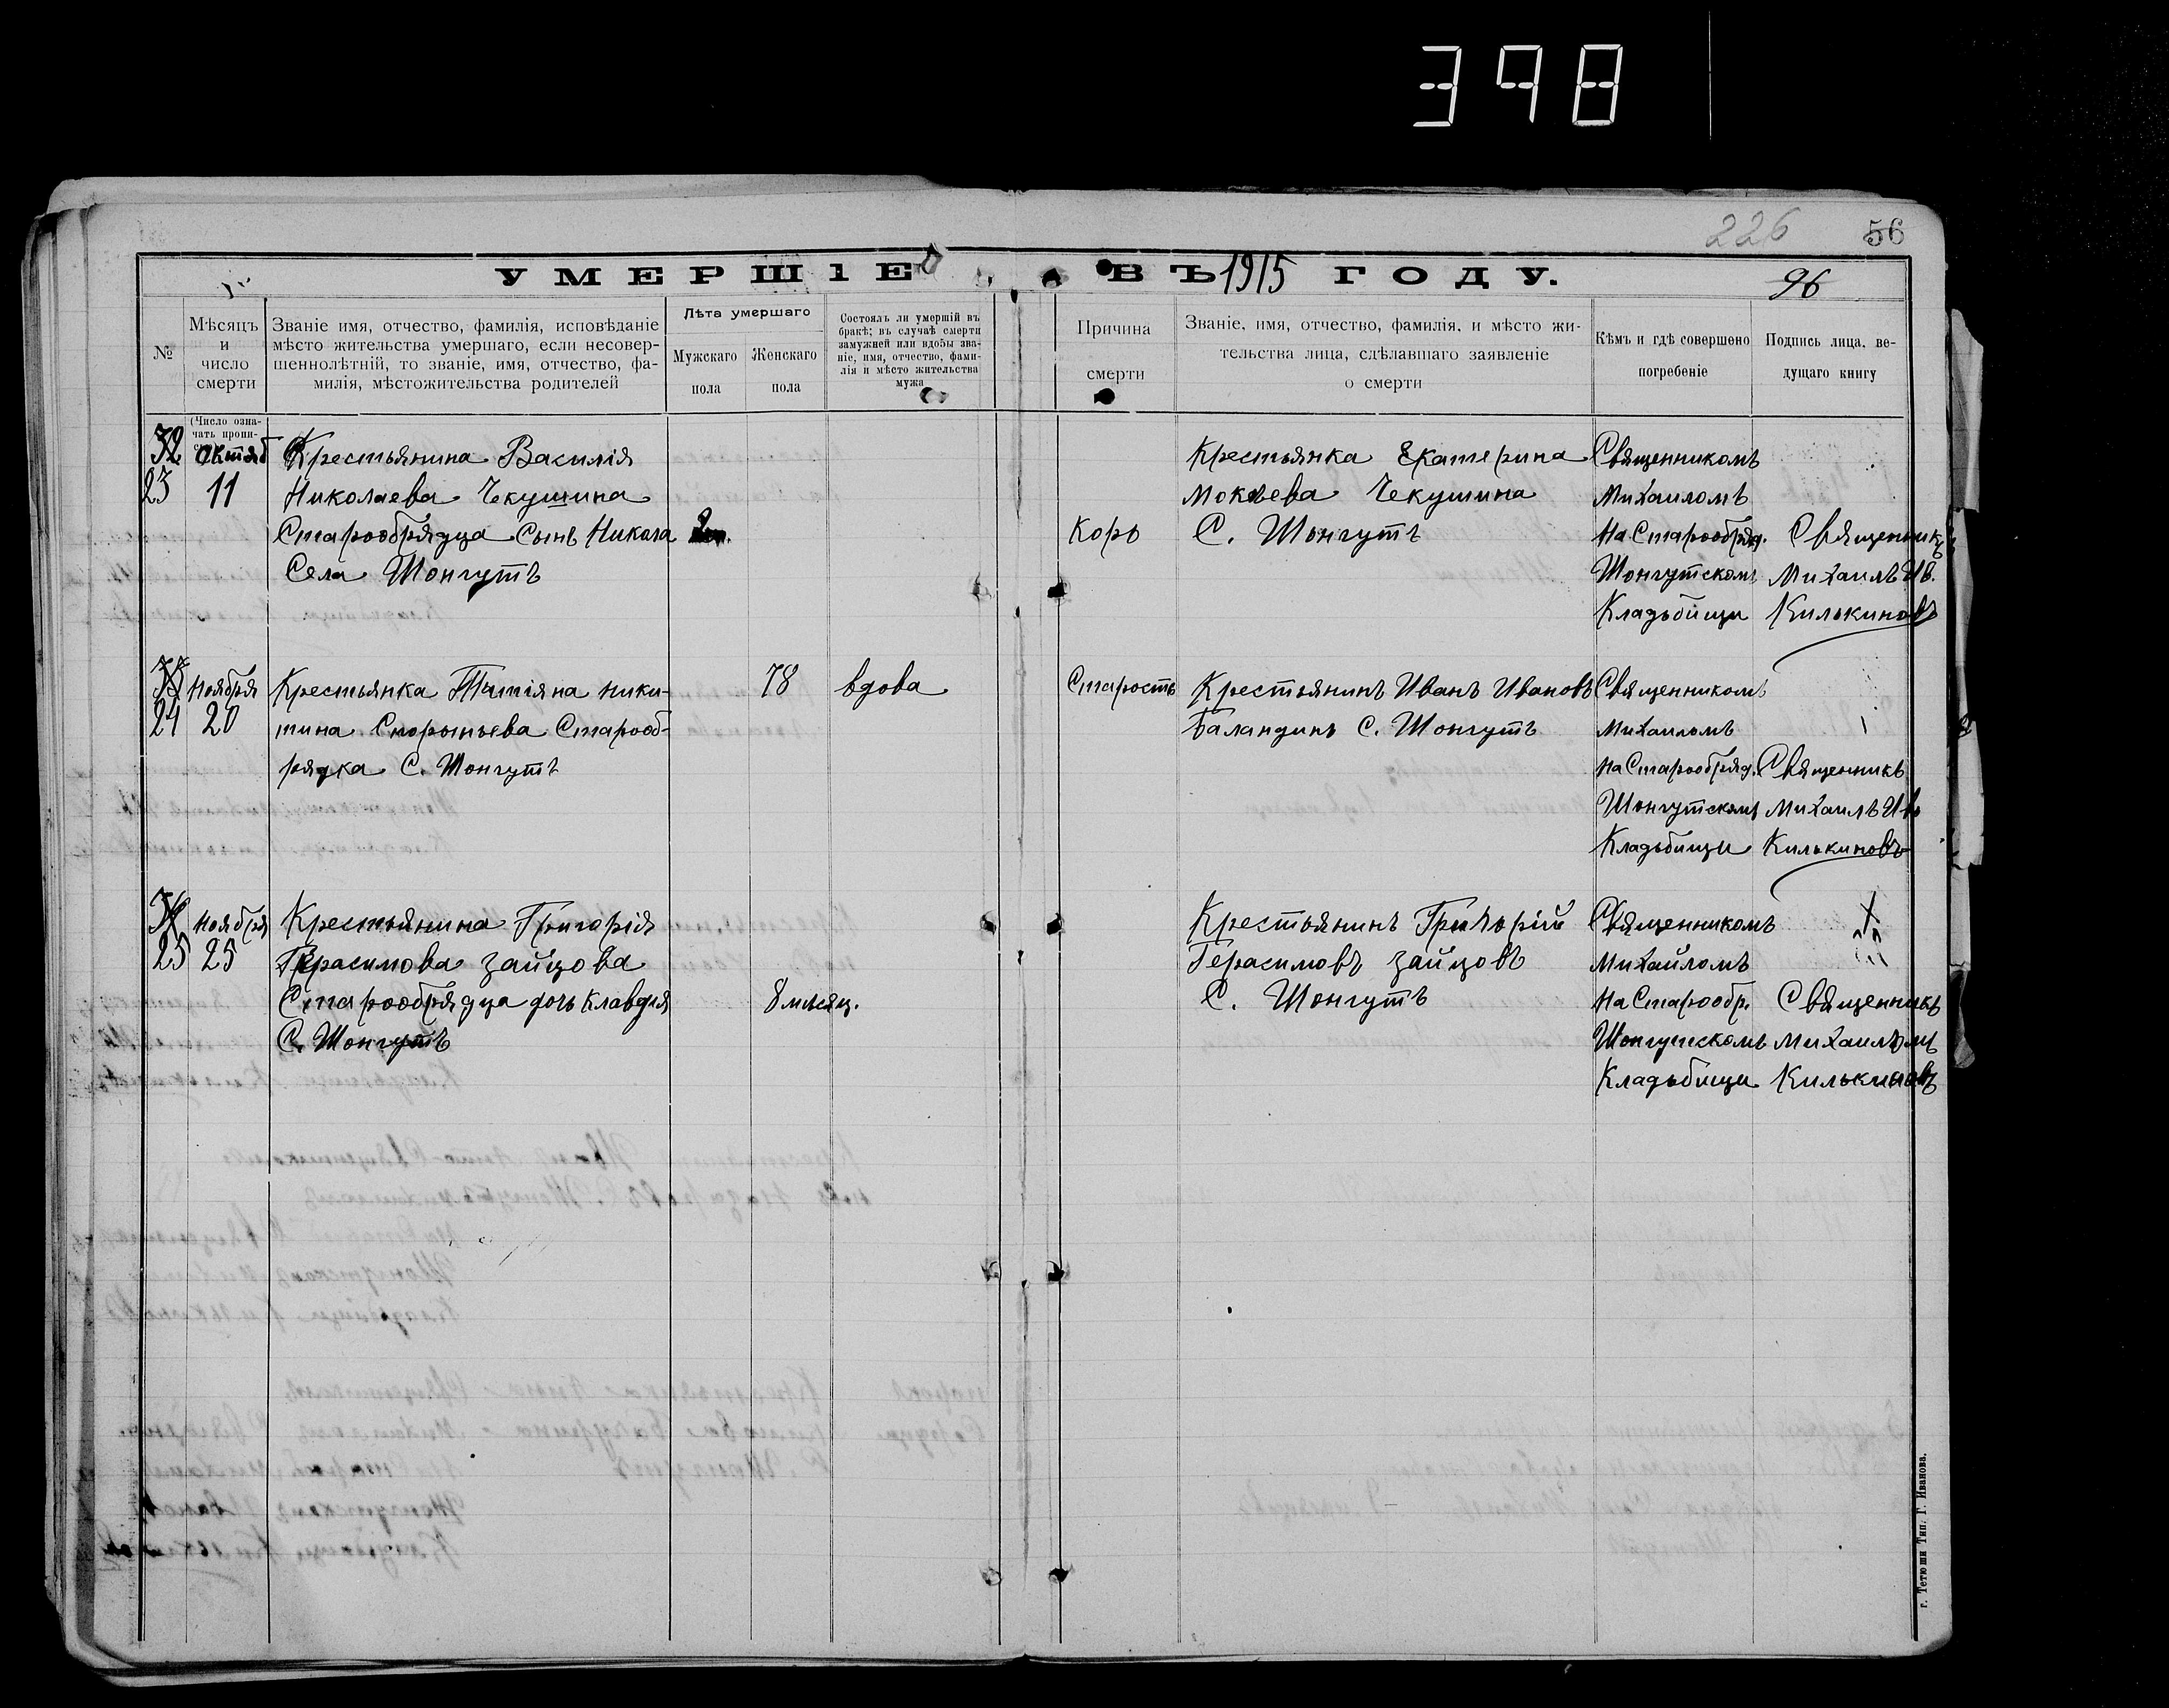 398
226 56
УМЕРШІЕ ВЪ 1915 ГОДУ.
96
№
Мѣсяцъ
и
число
смерти
Званіе имя, отчество, фамилія, исповѣданіе
мѣсто жительства умершаго, если несовер-
шеннолѣтній, то званіе, имя, отчество, фа-
милія, мѣстожительства родителей
Лѣта умершаго
Мужскаго
пола
Женскаго
пола
Состоялъ ли умершій въ
бракѣ; въ случаѣ смерти
замужней или вдовы зва-
ніе, имя, отчество, фами-
лія и мѣсто жительства
мужа
Причина
смерти
Званіе, имя, отчество, фамилія, и мѣсто жи-
тельства лица, сдѣлавшаго заявленіе
о смерти
Кѣмъ и гдѣ совершено
погребеніе
Подпись лица, ве-
дущаго книгу
(Число озна-
чать пропи-
32
23
Октяб
11
Крестьянина Василія
Николаева Чекушина
Старообрядца Сынъ Никола
Села Шонгутъ
Корь
Крестьянка Екатерина
Мокеева Чекушина
С. Шонгутъ
Священникомъ
Михаиломъ
На Старообряд.
Шонгутскомъ
Кладьбищи
Священникъ
Михаилъ Ив.
Килькиновъ
24
Ноября
20
Крестьянка Татіяна Ники-
тина Скорыньева Старооб-
рядка С. Шонгутъ
78
вдова
Старость
Крестьянинъ Иванъ Ивановъ
Баландинъ С. Шонгутъ
Священникомъ
Михаиломъ
На Старообряд.
Шонгутскомъ
Кладьбищи
Священникъ
Михаилъ Ив
Килькиновъ
25
Ноября
25
Крестьянина Григорія
Герасимова Зайцова
Старообрядца дочь Клавдия
С. Шонгутъ
8 мѣсяц.
Крестьянинъ Григорій
Герасимовъ Зайцовъ
С. Шонгутъ
Священникомъ
Михайломъ
На Старообр.
Шонгутскомъ
Кладьбищи
Священникъ
Михаиломъ
Килькиновъ
г. Тетюши Тип. Г. Иванова.